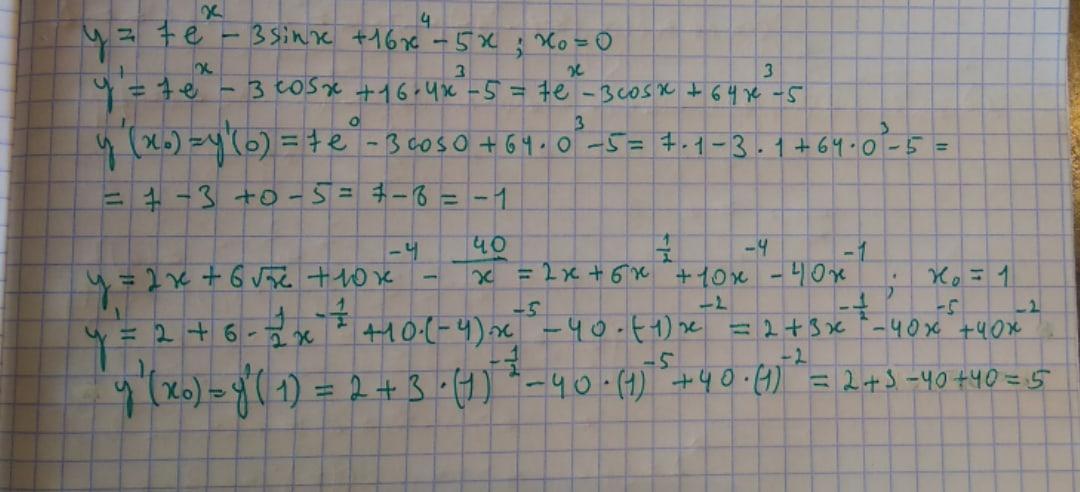 y = 7e^x - 3sinx + 16x^4 - 5x ; x₀ = 0
y' = 7e^x - 3cosx + 16·4x^3 - 5 = 7e^x - 3cosx + 64x^3 - 5
y'(x₀) = y'(0) = 7e^0 - 3cos0 + 64·0^3 - 5 = 7·1 - 3·1 + 64·0^3 - 5 =
= 7 - 3 + 0 - 5 = 7 - 8 = -1
y = 2x + 6√x + 10x^-4 - 40/x = 2x + 6x^1/2 + 10x^-4 - 40x^-1 ; x₀ = 1
y' = 2 + 6·1/2x^-1/2 + 10·(-4)x^-5 - 40·(-1)x^-2 = 2 + 3x^-1/2 - 40x^-5 + 40x^-2
y'(x₀) = y'(1) = 2 + 3·(1)^-1/2 - 40·(1)^-5 + 40·(1)^-2 = 2 + 3 - 40 + 40 = 5